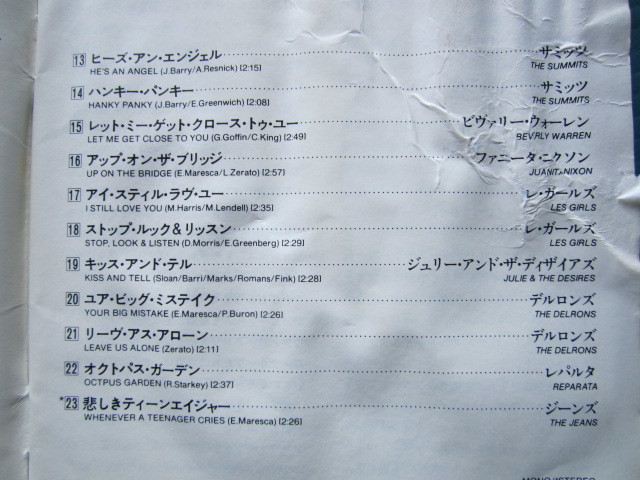 13 ヒーズ・アン・エンジェル サミッツ
HE'S AN ANGEL (J.Barry/A.Resnick) [2:15] THE SUMMITS
14 ハンキー・パンキー サミッツ
HANKY PANKY (J.Barry/E.Greenwich) [2:08] THE SUMMITS
15 レット・ミー・ゲット・クロース・トゥ・ユー ビヴァリー・ウォーレン
LET ME GET CLOSE TO YOU (G.Goffin/C.King) [2:49] BEVRLY WARREN
16 アップ・オン・ザ・ブリッジ ファニータ・ニクソン
UP ON THE BRIDGE (E.Maresca/L.Zerato) [2:57] JUANITA NIXON
17 アイ・スティル・ラヴ・ユー レ・ガールズ
I STILL LOVE YOU (M.Harris/M.Lendell) [2:35] LES GIRLS
18 ストップ・ルック&リッスン レ・ガールズ
STOP, LOOK & LISTEN (D.Morris/E.Greenberg) [2:29] LES GIRLS
19 キッス・アンド・テル ジュリー・アンド・ザ・ディザイアズ
KISS AND TELL (Sloan/Barri/Marks/Romans/Fink) [2:28] JULIE & THE DESIRES
20 ユア・ビッグ・ミステイク デルロンズ
YOUR BIG MISTAKE (E.Maresca/P.Buron) [2:26] THE DELRONS
21 リーヴ・アス・アローン デルロンズ
LEAVE US ALONE (Zerato) [2:11] THE DELRONS
22 オクトパス・ガーデン レパルタ
OCTPUS GARDEN (R.Starkey) [2:37] REPARATA
*23 悲しきティーンエイジャー ジーンズ
WHENEVER A TEENAGER CRIES (E.Maresca) [2:26] THE JEANS